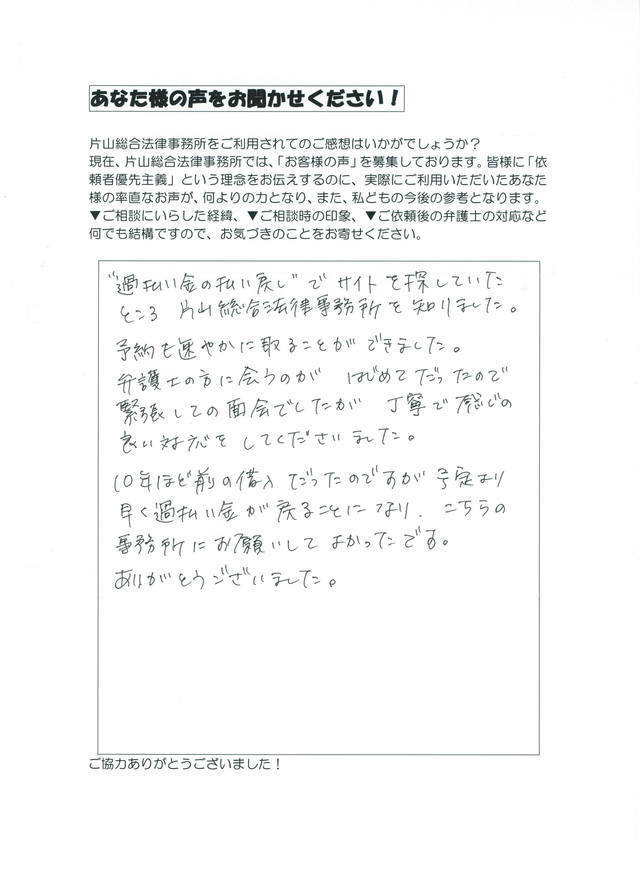 あなた様の声をお聞かせください！
片山総合法律事務所をご利用されてのご感想はいかがでしょうか？
現在、片山総合法律事務所では、「お客様の声」を募集しております。皆様に「依
頼者優先主義」という理念をお伝えするのに、実際にご利用いただいたあなた
様の率直なお声が、何よりの力となり、また、私どもの今後の参考となります。
▼ご相談にいらした経緯、▼ご相談時の印象、▼ご依頼後の弁護士の対応など
何でも結構ですので、お気づきのことをお寄せください。
"過払い金の払い戻し"でサイトを探していた
ところ 片山総合法律事務所を知りました。
予約も速やかに取ることができました。
弁護士の方に会うのが はじめてだったので
緊張しての面会でしたが 丁寧で感じの
良い対応をしてくださいました。
10年ほど前の借入だったのですが予定より
早く過払い金が戻ることになり、こちらの
事務所にお願いしてよかったです。
ありがとうございました。
ご協力ありがとうございました！